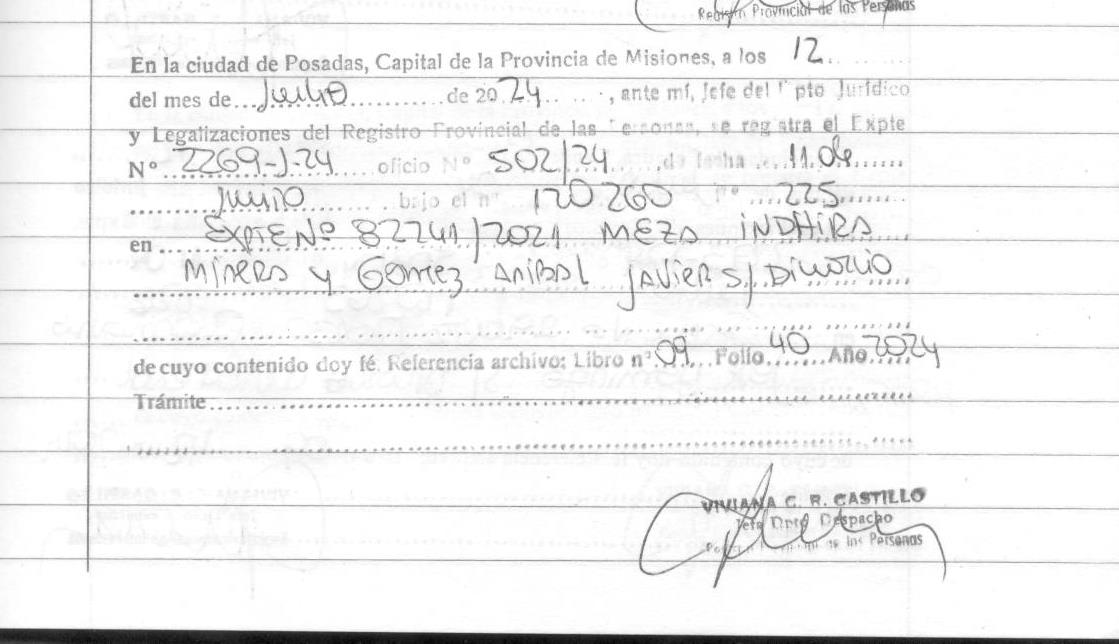 Registro Provincial de las Personas
En la ciudad de Posadas, Capital de la Provincia de Misiones, a los 12
del mes de Julio de 2024, ante mí, Jefe del Dpto Jurídico
y Legalizaciones del Registro Provincial de las Personas, se registra el Expte
N° 2269-J-24 oficio N° 502/24 de fecha 11 de
Junio bajo el n° 120260 n° 225
en EXPTE Nº 82241/2021 MEZA INDHIRA
MINERA y GOMEZ ANIBAL JAVIER S/ DIVORCIO
de cuyo contenido doy fé. Referencia archivo: Libro n° 09 Folio 40 Año 2024
Trámite
VIVIANA C. R. CASTILLO
Jefa Dpto Despacho
Registro Provincial de las Personas